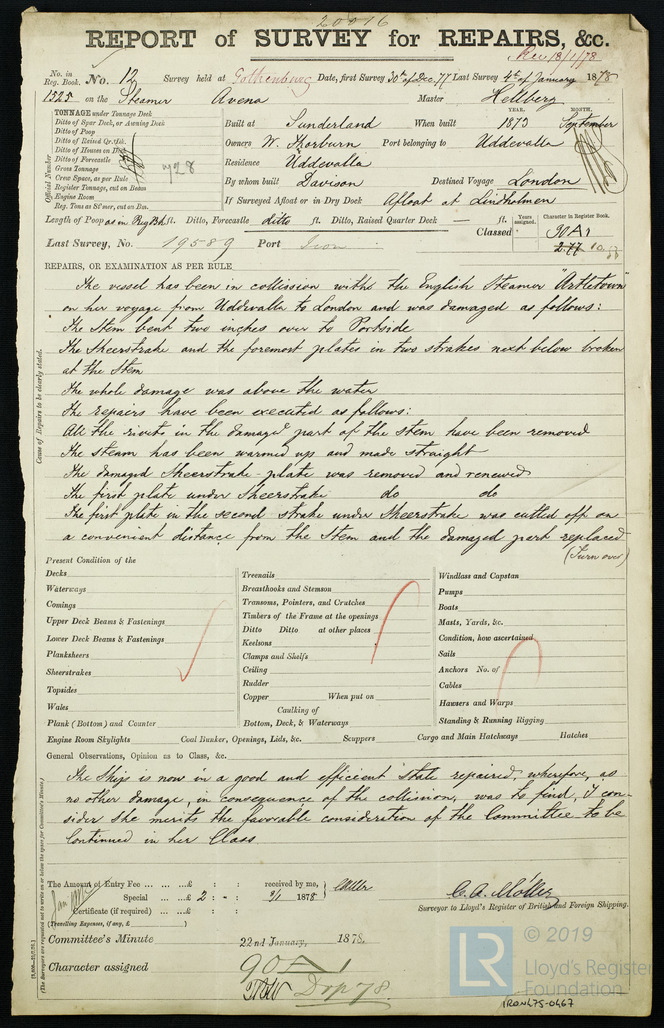 20016
REPORT of SURVEY for REPAIRS, &c.
Rec 18/1/78
No. in Reg. Book. No. 12 Survey held at Gothenburg Date, first Survey 30th of Dec. 77 Last Survey 4th of January 1878
1525 on the Steamer Avena Master Hellberg
TONNAGE under Tonnage Deck
Ditto of Spar Deck, or Awning Deck
Ditto of Poop
Ditto of Raised Qr. Dk.
Ditto of Houses on Deck
Ditto of Forecastle
Gross Tonnage
Crew Space, as per Rule
Register Tonnage, cut on Beam
Engine Room
Reg. Tons as St'mer, cut on Bm.
Official Number
928
YEAR. MONTH.
Built at Sunderland When built 1873 September
Owners W. Thorburn Port belonging to Uddevalla
Residence Uddevalla
By whom built Davison Destined Voyage London
If Surveyed Afloat or in Dry Dock Afloat at Lindholmen
Length of Poop as in Reg Bk ft. Ditto, Forecastle ditto ft. Ditto, Raised Quarter Deck — ft.
Years assigned. Character in Register Book.
Classed 90A1
2.77
Last Survey, No. 19589 Port Iron
REPAIRS, OR EXAMINATION AS PER RULE
The vessel has been in collision withs the English Steamer "Urtletown"
on her voyage from Uddevalla to London and was damaged as follows:
The Stem bent two inches over to Portside
The Sheerstrake and the foremost plates in two strakes next below broken
at the Stem
The whole damage was above the water
The repairs have been executed as follows:
All the rivets in the damaged part of the stem have been removed
The steam has been warmed up and made straight
The damaged Sheerstrake-plate was removed and renewed
The first plate under Sheerstrake do do
The first plate in the second strake under Sheerstrake was cutted off on
a convenient distance from the Stem and the damaged part replaced
(Turn over)
Cause of Repairs to be clearly stated.
Present Condition of the
Decks
Waterways
Comings
Upper Deck Beams & Fastenings
Lower Deck Beams & Fastenings
Planksheers
Sheerstrakes
Topsides
Wales
Plank (Bottom) and Counter
Treenails
Breasthooks and Stemson
Transoms, Pointers, and Crutches
Timbers of the Frame at the openings
Ditto Ditto at other places
Keelsons
Clamps and Shelfs
Ceiling
Rudder
Copper When put on
Caulking of
Bottom, Deck, & Waterways
Windlass and Capstan
Pumps
Boats
Masts, Yards, &c.
Condition, how ascertained
Sails
Anchors No. of
Cables
Hawsers and Warps
Standing & Running Rigging
Engine Room Skylights Coal Bunker, Openings, Lids, &c. Scuppers Cargo and Main Hatchways Hatches
General Observations, Opinion as to Class, &c.
The Ship is now in a good and efficient state repaired, wherefore, as
no other damage, in consequence of the collision, was to find, I con-
sider she merits the favorable consideration of the Committee to be
continued in her Class
The Amount of Entry Fee ... ... ...£ : : received by me,
Special ... ...£ 2 : " : 9/1 1878
Certificate (if required) ... ...£ : :
(Travelling Expenses, if any, £ )
C. A. Möller
Surveyor to Lloyd's Register of British and Foreign Shipping.
Committee's Minute 22nd January, 1878.
Character assigned 90A1
Dop 78.
(The Surveyors are requested not to write on or below the space for Committee's Minute.)
LR © 2019
Lloyd's Register
Foundation
IRON475-0467